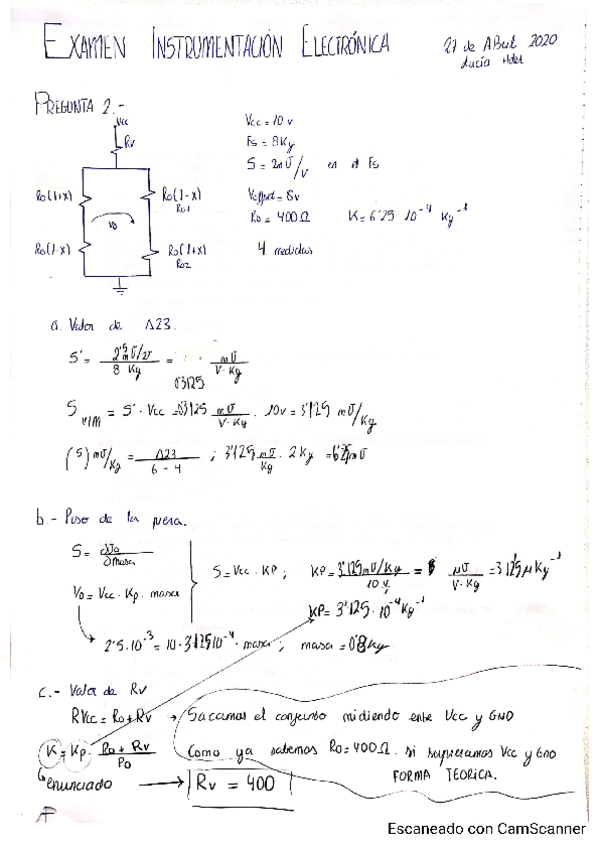 EXAMEN INSTRUMENTACIÓN ELECTRÓNICA
27 de ABril 2020
Lucía
PREGUNTA 2.-
Vcc
Rv
Ro(1+x)
Ro(1-x)
Ro1
Vo
Ro(1-x)
Ro(1+x)
Ro2
Vcc = 10 v
Fs = 8Kg
S = 2mV/v en el Fs
Voffset = 8v
Ro = 400Ω K = 6'25 10⁻⁴ Kg⁻¹
4 medidas
a. Valor de Δ23.
S' = 2'5mV/v / 8 Kg = 0'3125 mV / V·Kg
S = S'·Vcc = 0'3125 mV / V·Kg · 10v = 3'125 mV/Kg
(S) mV/Kg = Δ23 / 6-4 ; 3'125 mV / Kg · 2Kg = 6'25mV
b.- Peso de la pera.
S = dVo / dmasa
Vo = Vcc · Kp · masa
S = Vcc · KP ; KP = 3'125mV/Kg / 10 v = mV / V·Kg = 3125μKg⁻¹
KP = 3'125·10⁻⁴Kg⁻¹
2'5·10⁻³ = 10·3'125 10⁻⁴·masa ; masa = 0'8kg
c.- Valor de Rv
RVcc = Ro+Rv → Sacamos el conjunto midiendo entre Vcc y GND
K = Kp · Ro + Rv / Ro
Como ya sabemos Ro = 400Ω. si supieramos Vcc y GND
FORMA TEORICA.
enunciado → Rv = 400
Escaneado con CamScanner